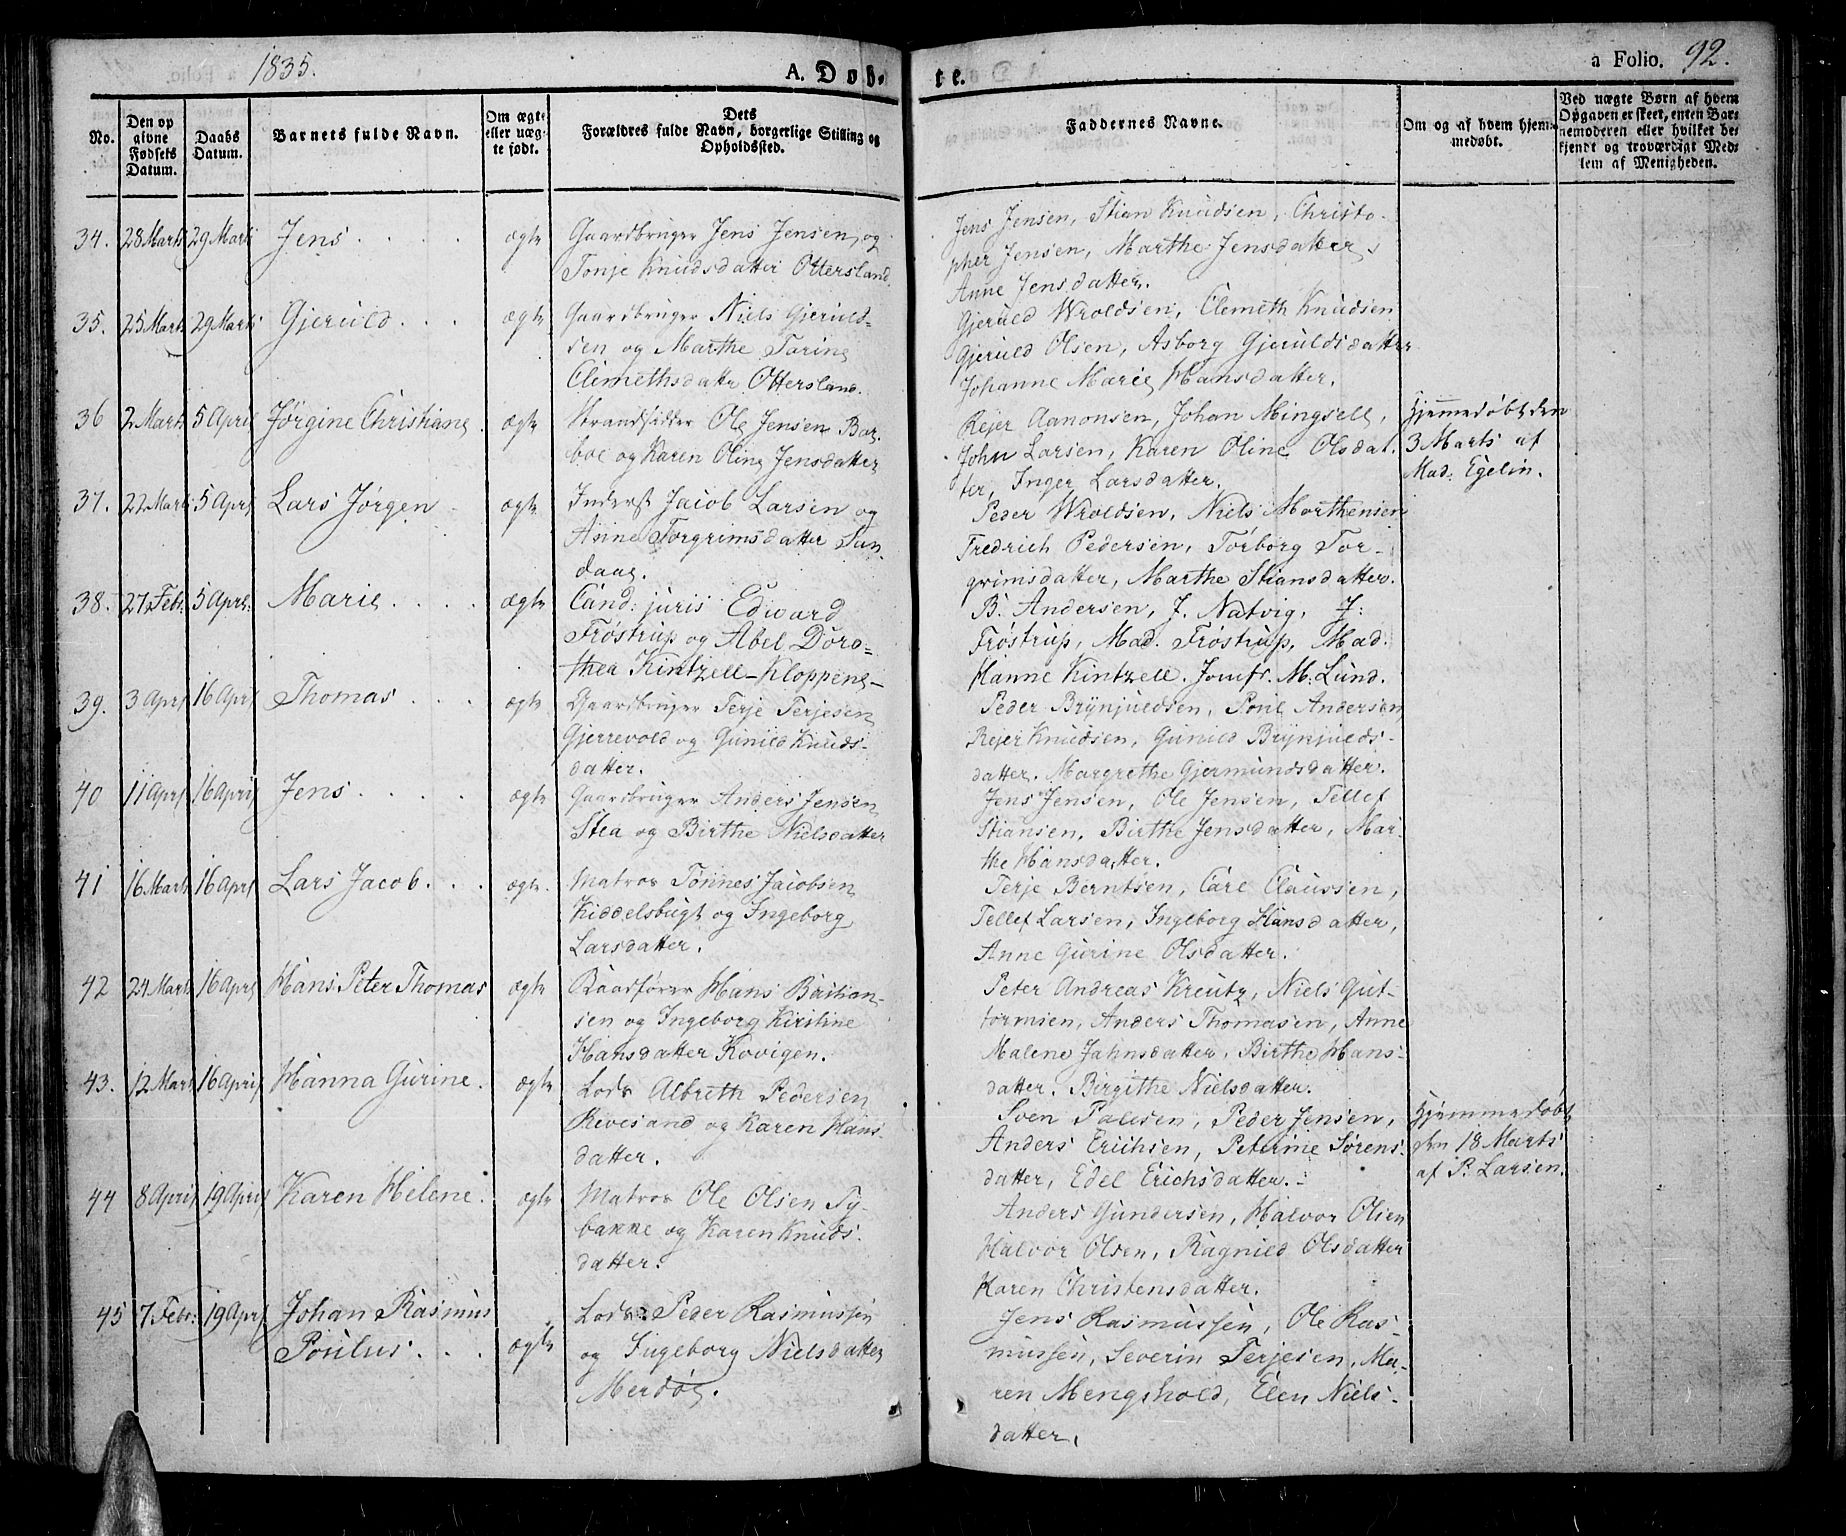 1835.
A. Døb-
te.
a Folio. 92.
No.
Den op
givne
Fødsels
Datum.
Daabs
Datum.
Barnets fulde Navn.
Om ægte
eller uæg-
te født.
Dets
Forældres fulde Navn, borgerlige Stilling og
Opholdssted.
Faddernes Navne.
Om og af hvem hjem-
medøbt.
Ved uægte Børn af hvem
Opgaven er skeet, enten Bar-
nemoderen eller hvilket be-
kjendt og troværdigt Med-
lem af Menigheden.
34. 28 Marts 29 Marts Jens ægte
Gaardbruger Jens Jensen og
Tonje Knudsdatter Ottersland.
Jens Jensen, Stian Knudsen, Christo-
pher Jensen, Marthe Jensdatter,
Anne Jensdatter.
35. 25 Marts 29 Marts Gjeruld ægte
Gaardbruger Niels Gjeruld-
sen og Marthe Torine
Clemethsdattr Ottersland.
Gjeruld Wroldsen, Clemeth Knudsen
Gjeruld Olsen, Asborg Gjeruldsdatter
Johanne Marie Hansdatter.
36 2 Marts 5 April Jørgine Christiane ægte
Strandsidder Ole Jensen Bar-
boe og Karen Oline Jensdatter
Rejer Aamonsen, Johan Mingsell,
John Larsen, Karen Oline Olsdat-
ter, Inger Larsdatter.
Hjemmedøbt den
3 Marts af
Mad: Egelin.
37. 22 Marts 5 April Lars Jørgen ægte
Inderst Jacob Larsen og
Anne Torgrimsdatter Sun-
daae.
Peder Wroldsen, Niels Morthensen
Fredrich Pedersen, Torborg Tor-
grimsdatter, Marthe Stiansdatter.
38. 27 Febr. 5 April Marie ægte
Cand: juris Edward
Frøstrup og Abel Doro-
thea Kintzell - Kloppene -
B. Andersen, J. Natvig, J:
Frøstrup, Mad. Frøstrup, Mad.
Hanne Kintzell. Jomfr. M. Lund.
39. 3 April 16 April Thomas ægte
Gaardbruger Terje Terjesen
Gjerrevold og Gunild Knuds-
datter.
Peder Brynjuldsen, Poul Andersen
Rejer Knudsen, Gunild Brynjulds-
datter. Margrethe Gjermundsdatter.
40 11 April 16 April Jens ægte
Gaardbruger Anders Jensen
Stea og Birthe Nielsdatter
Jens Jensen, Ole Jensen, Tellef
Stiansen, Birthe Jensdatter, Mar-
the Hansdatter.
41 16 Marts 16 April Lars Jacob ægte
Matros Tønnes Jacobsen
Kiddelsbugt og Ingeborg
Larsdatter.
Terje Berntsen, Carl Claussen,
Tellef Larsen, Ingeborg Hansdatter,
Anne Gurine Olsdatter.
42 24 Marts 16 April Hans Peter Thomas ægte
Baadfører Hans Bastian-
sen og Ingeborg Kirstine
Hansdatter Kovigen.
Peter Andreas Kreutz, Niels Gut-
tormsen, Anders Thomasen, Anne
Malene Jahnsdatter, Birthe Hans-
datter. Birgithe Nielsdatter.
43. 12 Marts 16 April Hanna Gurine. ægte
Lods Albreth Pedersen
Revesand og Karen Hans-
datter.
Sven Palesen, Peder Jensen,
Anders Erichsen, Peterine Sørens-
datter, Edel Erichsdatter.
Hjemmedøbt
den 18 Marts
af P. Larsen.
44 8 April 19 April Karen Helene. ægte
Matros Ole Olsen Ty-
bakke og Karen Knuds-
datter.
Anders Gundersen, Halvor Olsen
Halvor Olsen, Ragnild Olsdatter
Karen Christensdatter.
45 7 Febr: 19 April Johan Rasmus
Poulus ægte
Lods: Peder Rasmussen
og Ingeborg Nielsdatter
Merdøe.
Jens Rasmussen, Ole Ras-
mussen, Severin Terjesen, Ma-
ren Mengshold, Elen Niels-
datter.